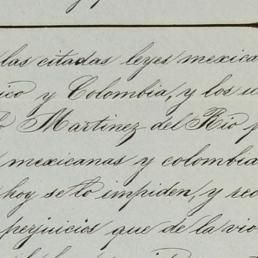 las citadas leyes mexica
ico y Colombia, y los u
Martinez del Rio p
mexicanas y colombia
hoy se lo impiden, y rec
perjuicios que de la vio